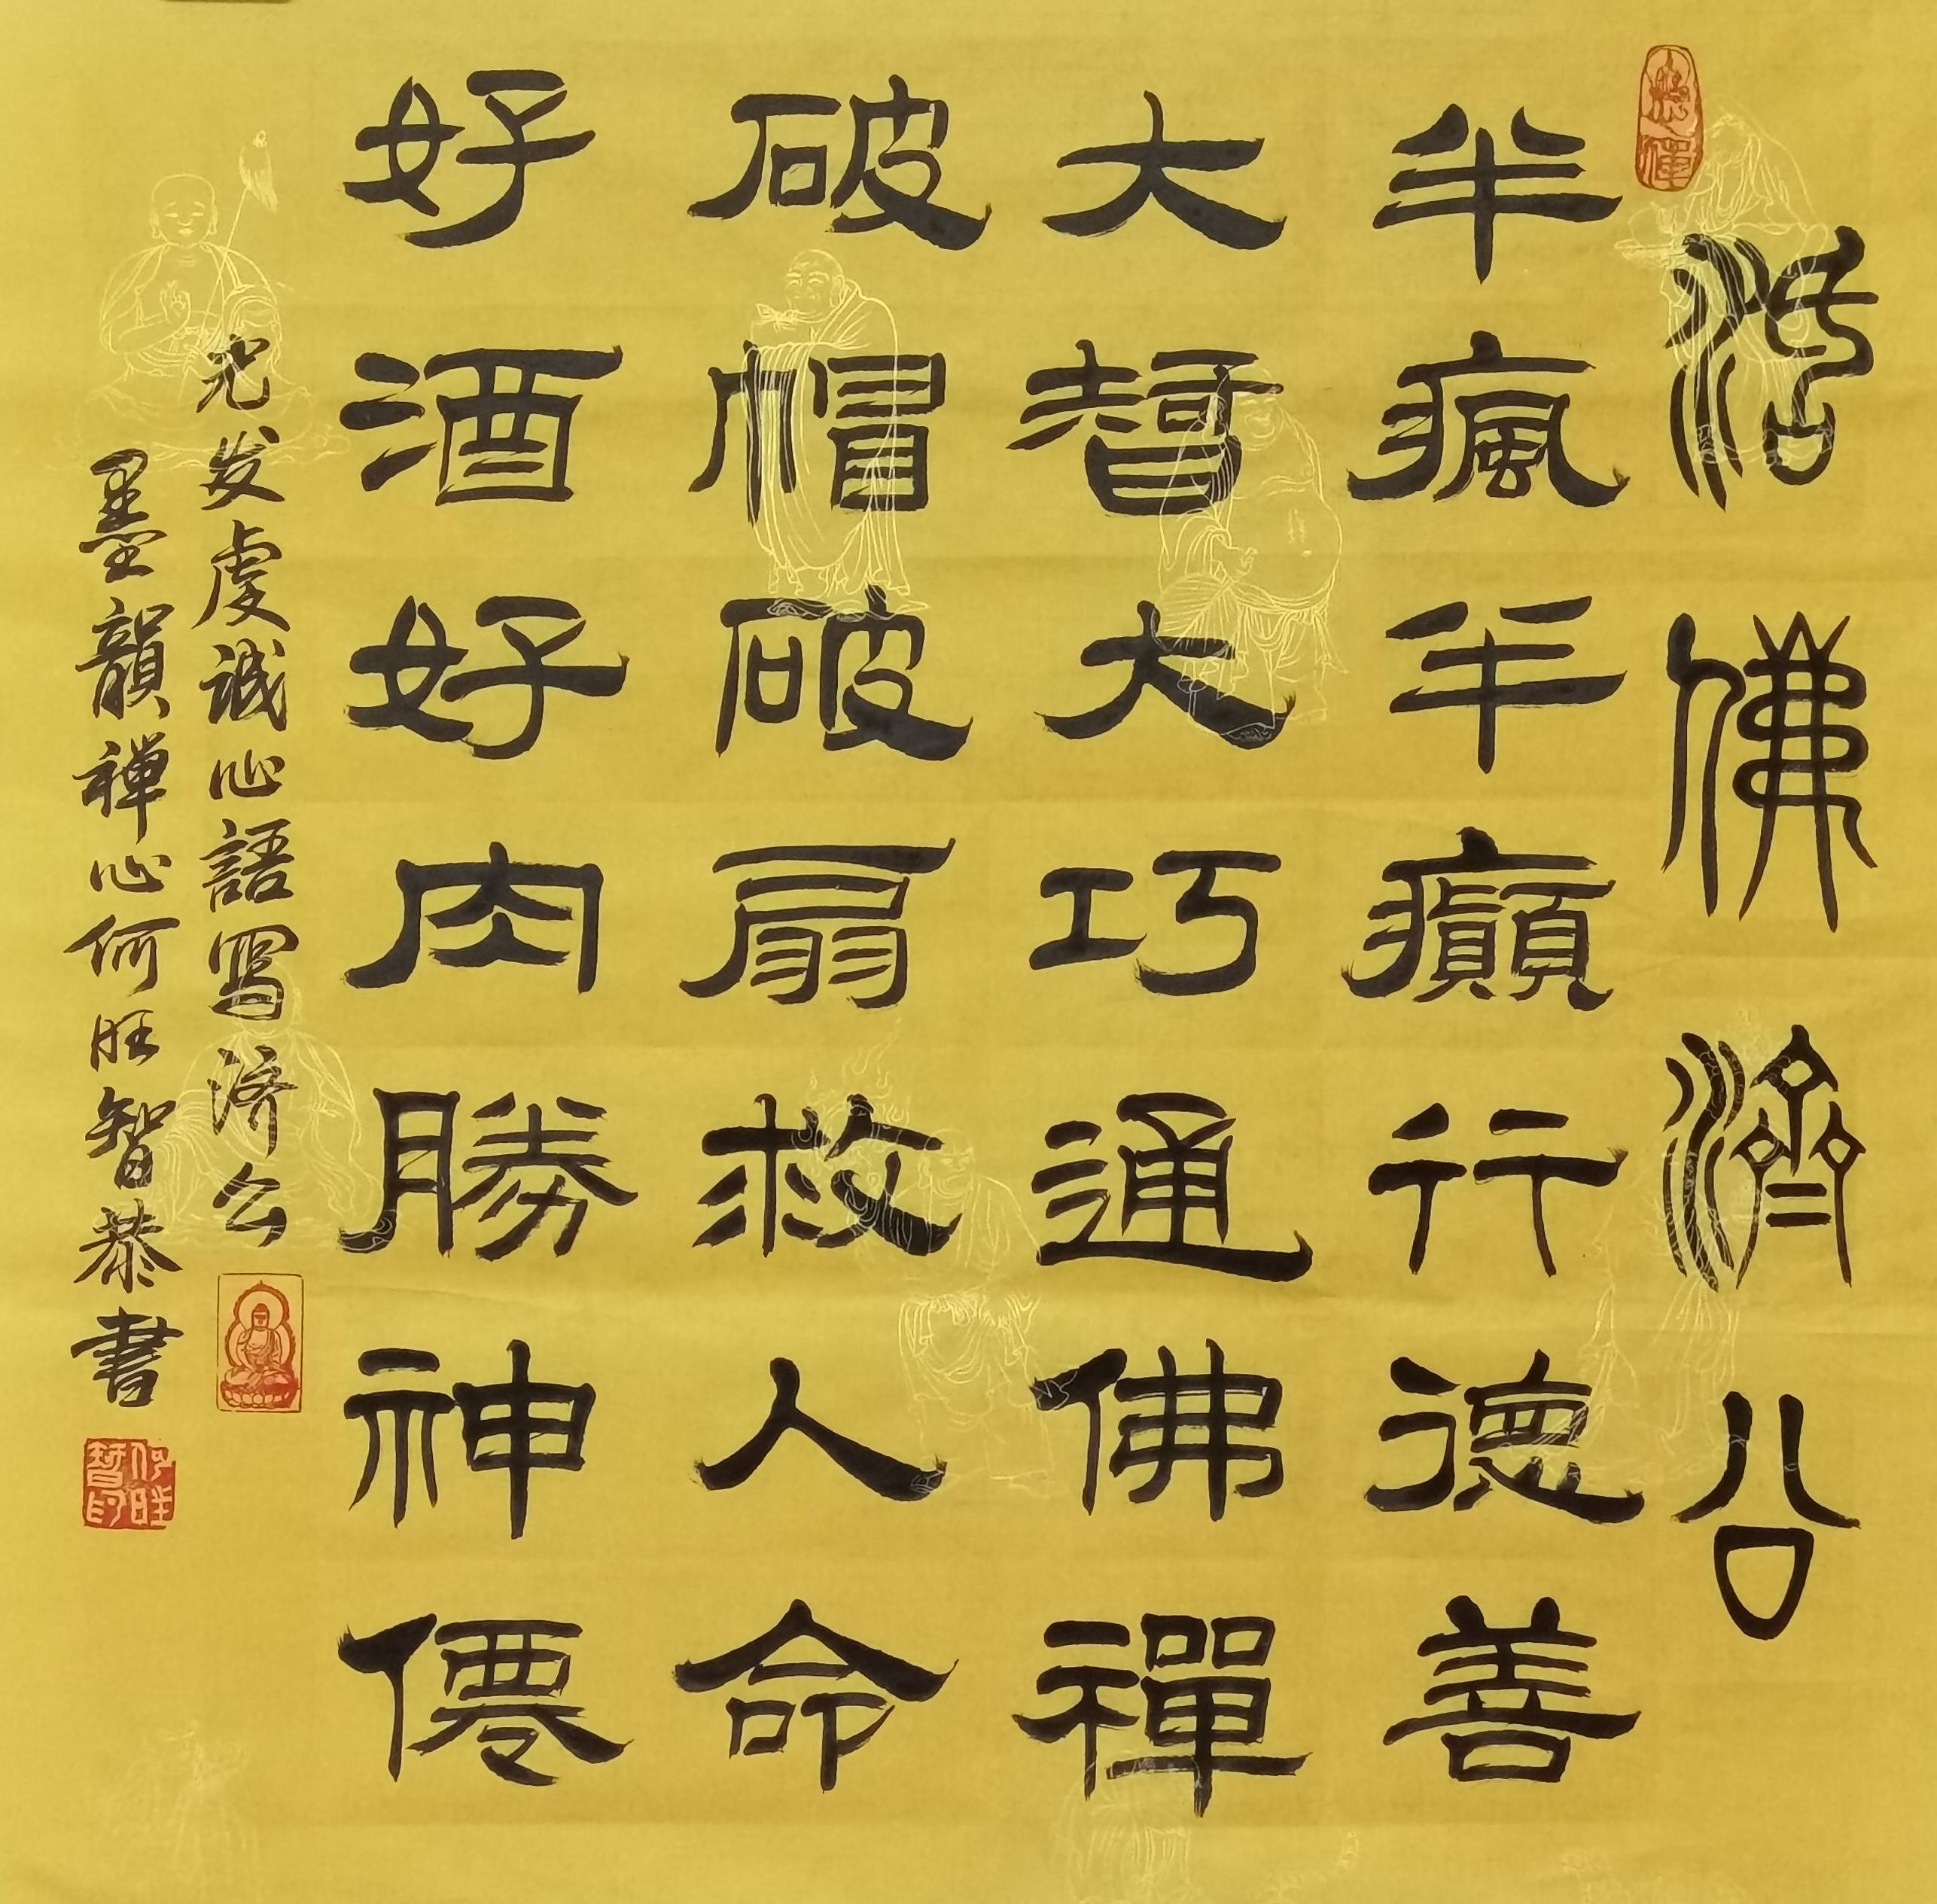 活佛濟公
半瘋半癲行德善
大智大巧通佛禪
破帽破扇救人命
好酒好肉勝神僊
光发虔诚心語写济公
墨韻禅心何旺智恭書